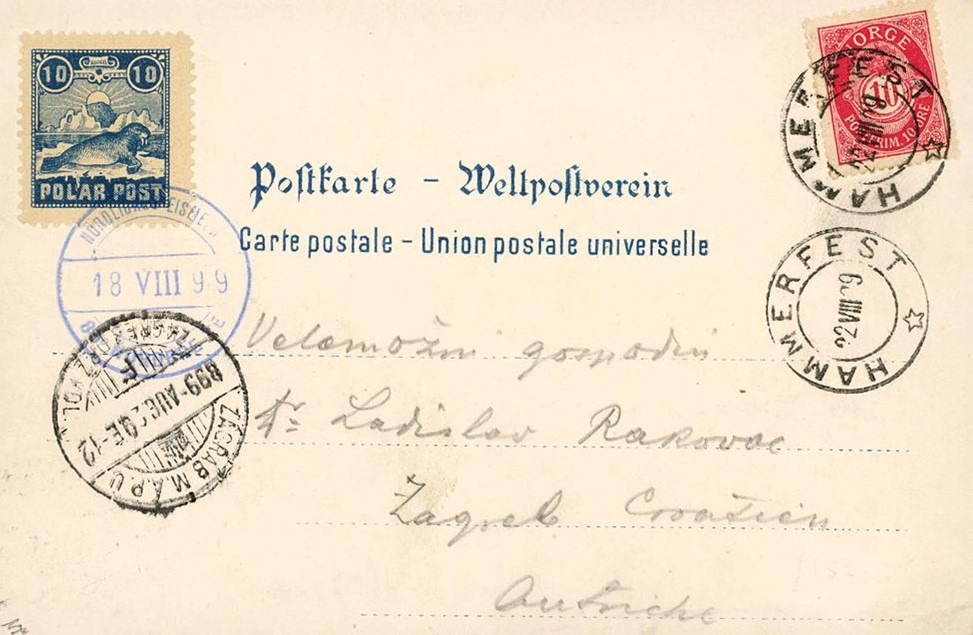 10 10
POLAR POST
NORGE
10
POSTFRIM. 10 ØRE
HAMMERFEST
Postkarte – Weltpostverein
Carte postale – Union postale universelle
18 VIII 99
HAMMERFEST
Velemožni gospodin
899-AUG.29.E-12
ZÁGRÁB M.Á.P.U.
Dr. Ladislav Rakovac
Zagreb Croatien
Autriche